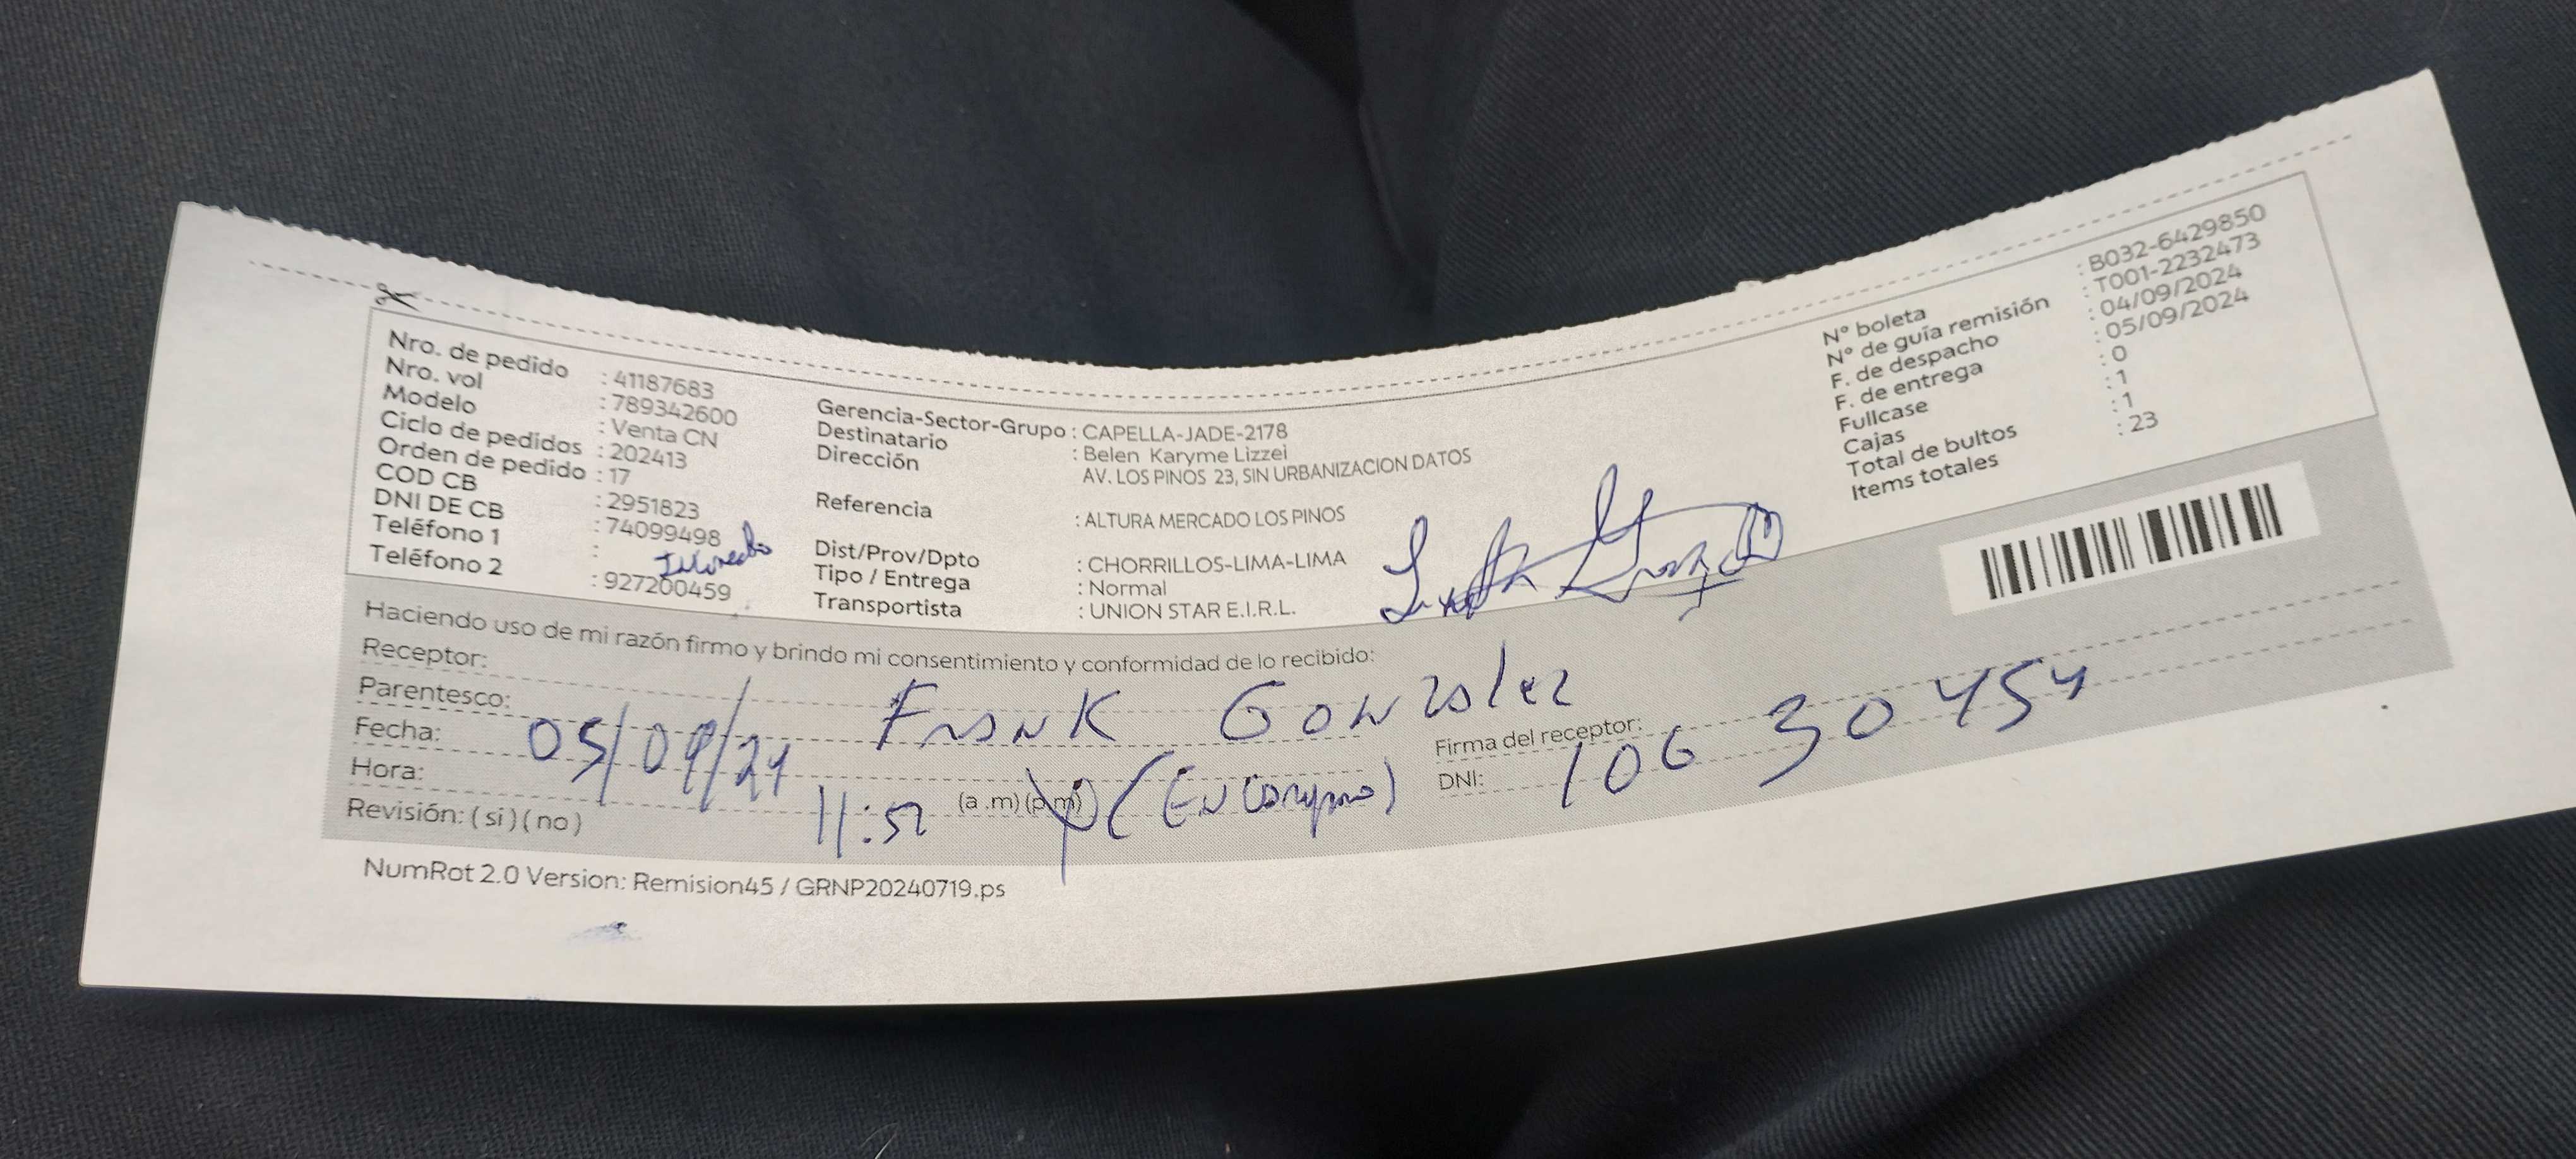 Nro. de pedido : 41187683
Nro. vol : 789342600
Modelo : Venta CN
Ciclo de pedidos : 202413
Orden de pedido : 17
COD CB : 2951823
DNI DE CB : 74099498
Teléfono 1 :
Teléfono 2 : 927200459
Gerencia-Sector-Grupo : CAPELLA-JADE-2178
Destinatario : Belen Karyme Lizzei
Dirección AV. LOS PINOS 23, SIN URBANIZACION DATOS
Referencia : ALTURA MERCADO LOS PINOS
Dist/Prov/Dpto : CHORRILLOS-LIMA-LIMA
Tipo / Entrega : Normal
Transportista : UNION STAR E.I.R.L.
N° boleta : B032-6429850
N° de guía remisión : T001-2232473
F. de despacho : 04/09/2024
F. de entrega : 05/09/2024
Fullcase : 0
Cajas : 1
Total de bultos : 1
Items totales : 23
Haciendo uso de mi razón firmo y brindo mi consentimiento y conformidad de lo recibido:
Receptor: Frank Gonzalez
Parentesco:
Fecha: 05/09/24
Hora: 11:52 (a .m) (p.m)
Revisión: ( si ) ( no )
Firma del receptor:
DNI: 106 30454
NumRot 2.0 Version: Remision45 / GRNP20240719.ps